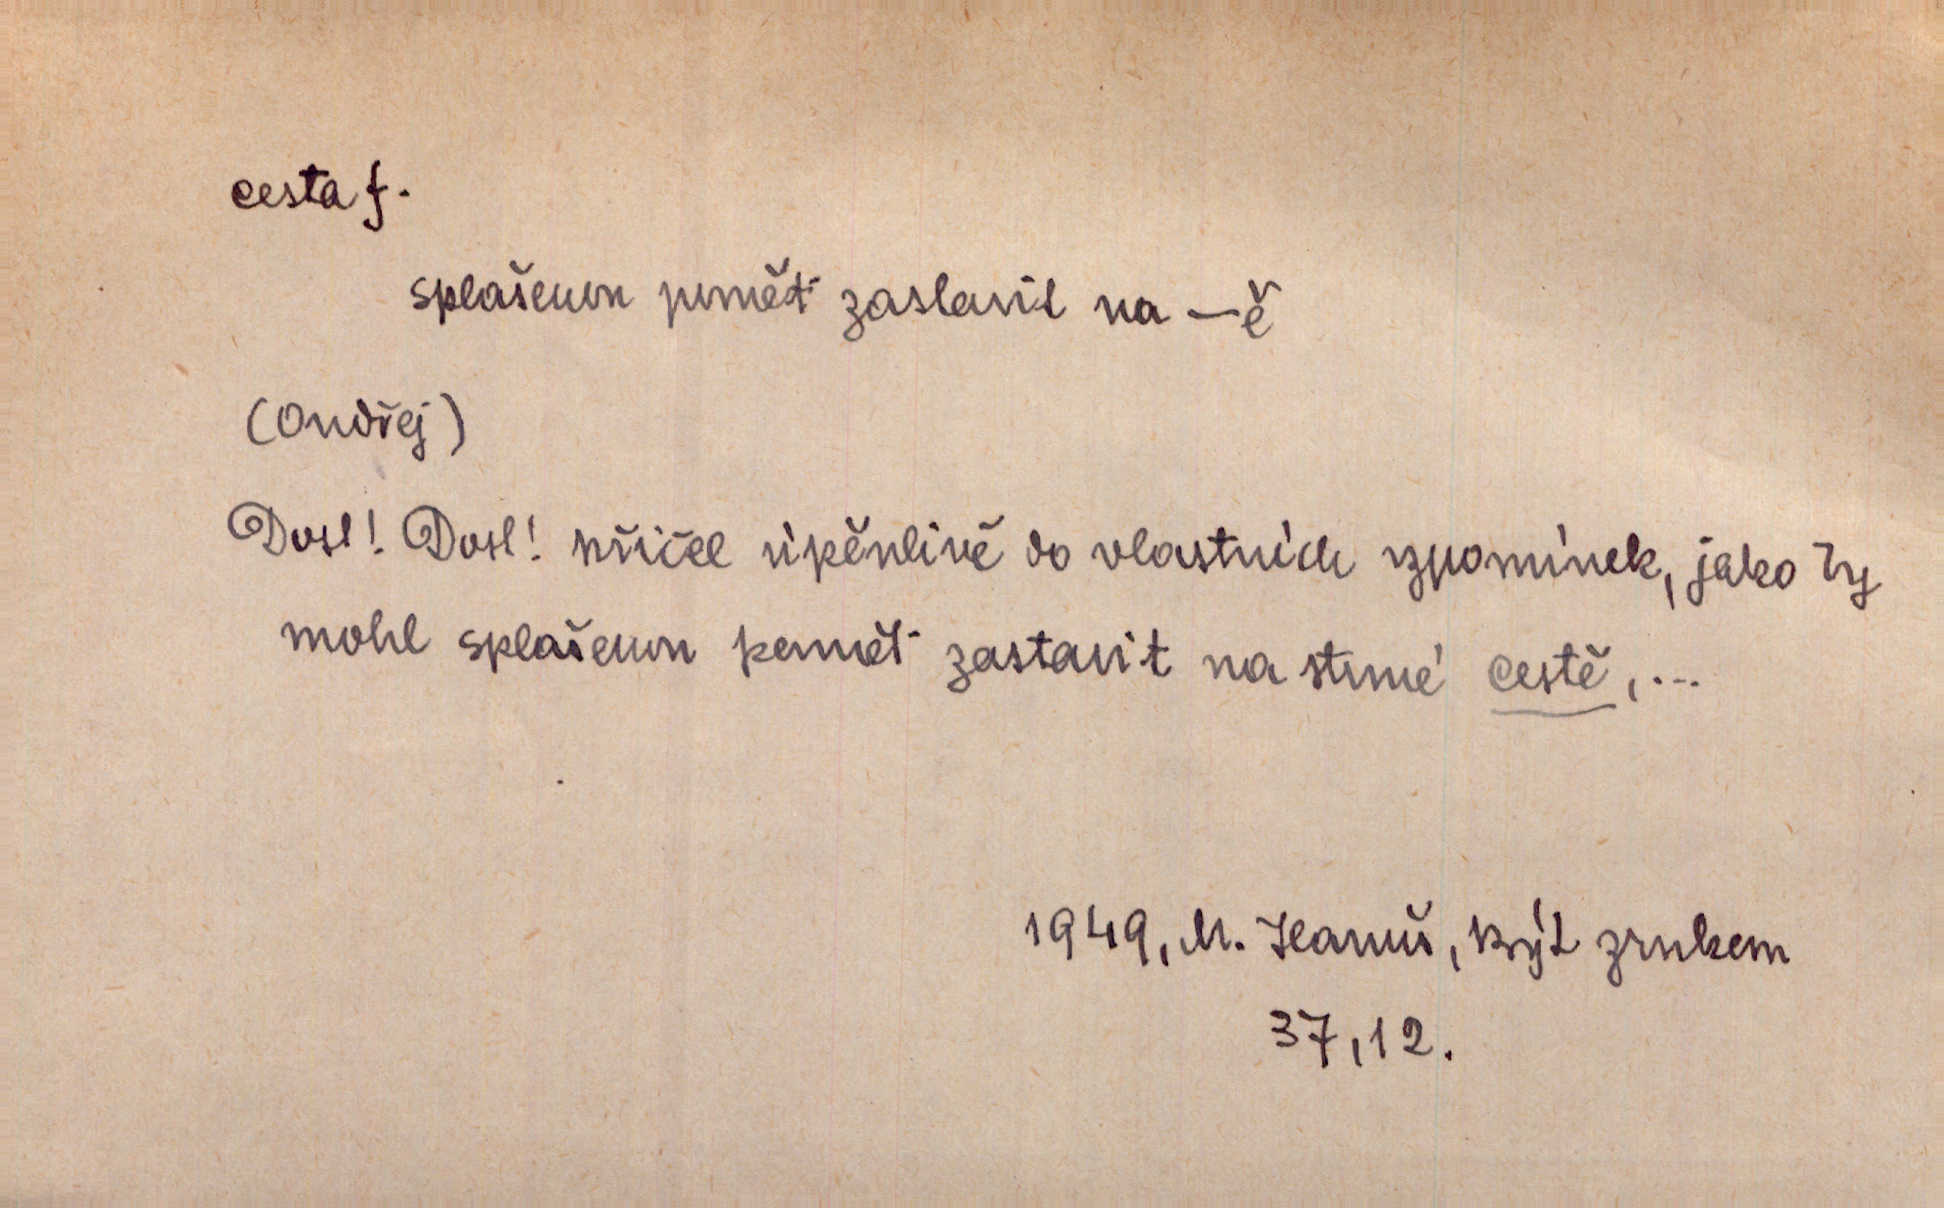 cesta f.
splašenou paměť zastavit na —ě
(Ondřej)
Dost! Dost! křičel úpěnlivě do vlastních vzpomínek, jako by
mohl splašenou paměť zastavit na strmé cestě, ...
1949, M. Hanuš,
37,12.